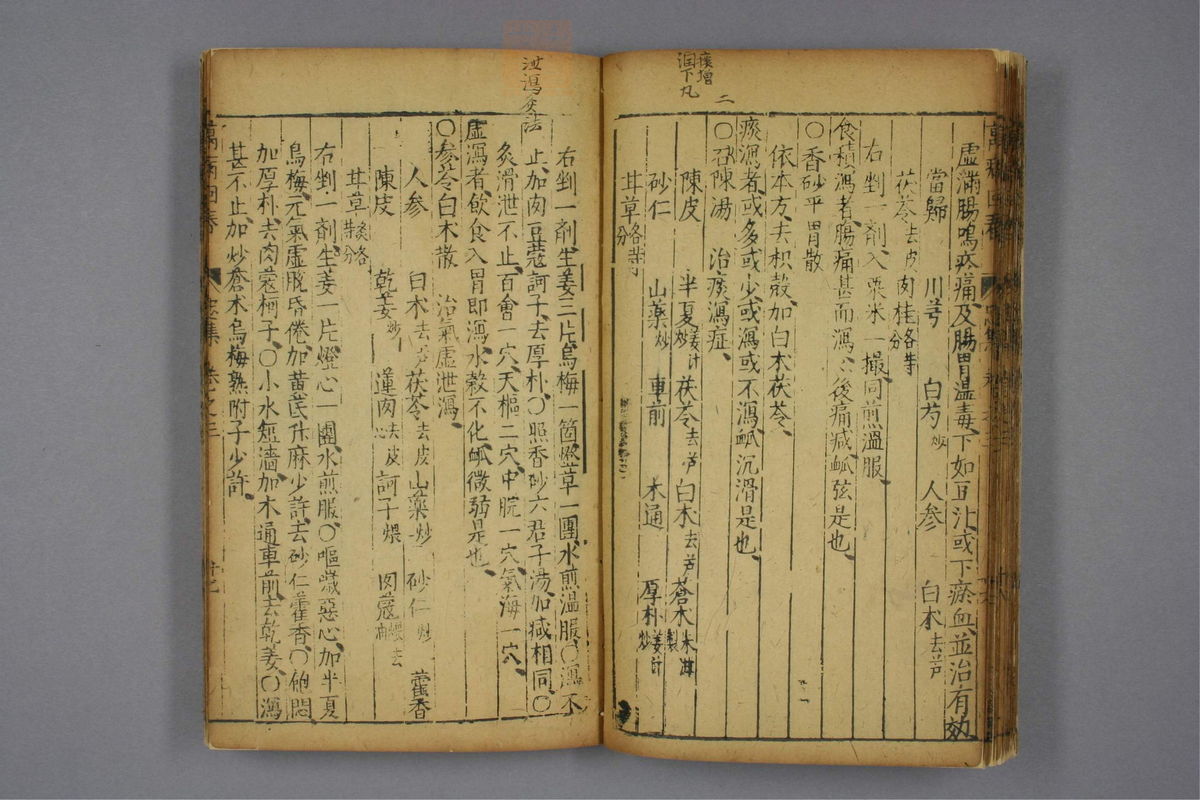 痰增
潤下丸
二
虛滿腸鳴疼痛及腸胃溫毒下如豆汁或下瘀血並治有効
當歸 川芎 白芍炒 人參 白朮去芦
茯苓去皮 肉桂各等分
右剉一剤入粟米一撮同煎溫服
食積瀉者腸痛甚而瀉瀉後痛减脈弦是也
〇香砂平胃散
依本方去枳殼加白朮茯苓
痰瀉者或多或少或瀉或不瀉脈沉滑是也
〇二陳湯 治痰瀉症
陳皮 半夏姜汁炒 茯苓去芦 白朮去芦 蒼朮米泔製
砂仁 山藥炒 車前 木通 厚朴姜汁炒
甘草各等分
泄瀉灸法
右剉一剤生姜三片烏梅一箇燈草一團水煎溫服〇瀉不
止加肉豆蔻訶子去厚朴〇照香砂六君子湯加减相同〇
灸滑泄不止百會一穴天樞二穴中脘一穴氣海一穴
虛瀉者飲食入胃即瀉水穀不化脈微弱是也
〇參苓白朮散 治氣虛泄瀉
人參 白朮去芦 茯苓去皮 山藥炒 砂仁炒 藿香
陳皮 乾姜炒 蓮肉去皮心 訶子煨 肉蔻煨去油
甘草炙各等分
右剉一剤生姜一片燈心一團水煎服〇嘔噦惡心加半夏
烏梅元氣虛脫昏倦加黃芪升麻少許去砂仁藿香〇飽悶
加厚朴去肉蔻柯子〇小水短濇加木通車前去乾姜〇瀉
甚不止加炒蒼朮烏梅熟附子少許
萬病回春 卷之三